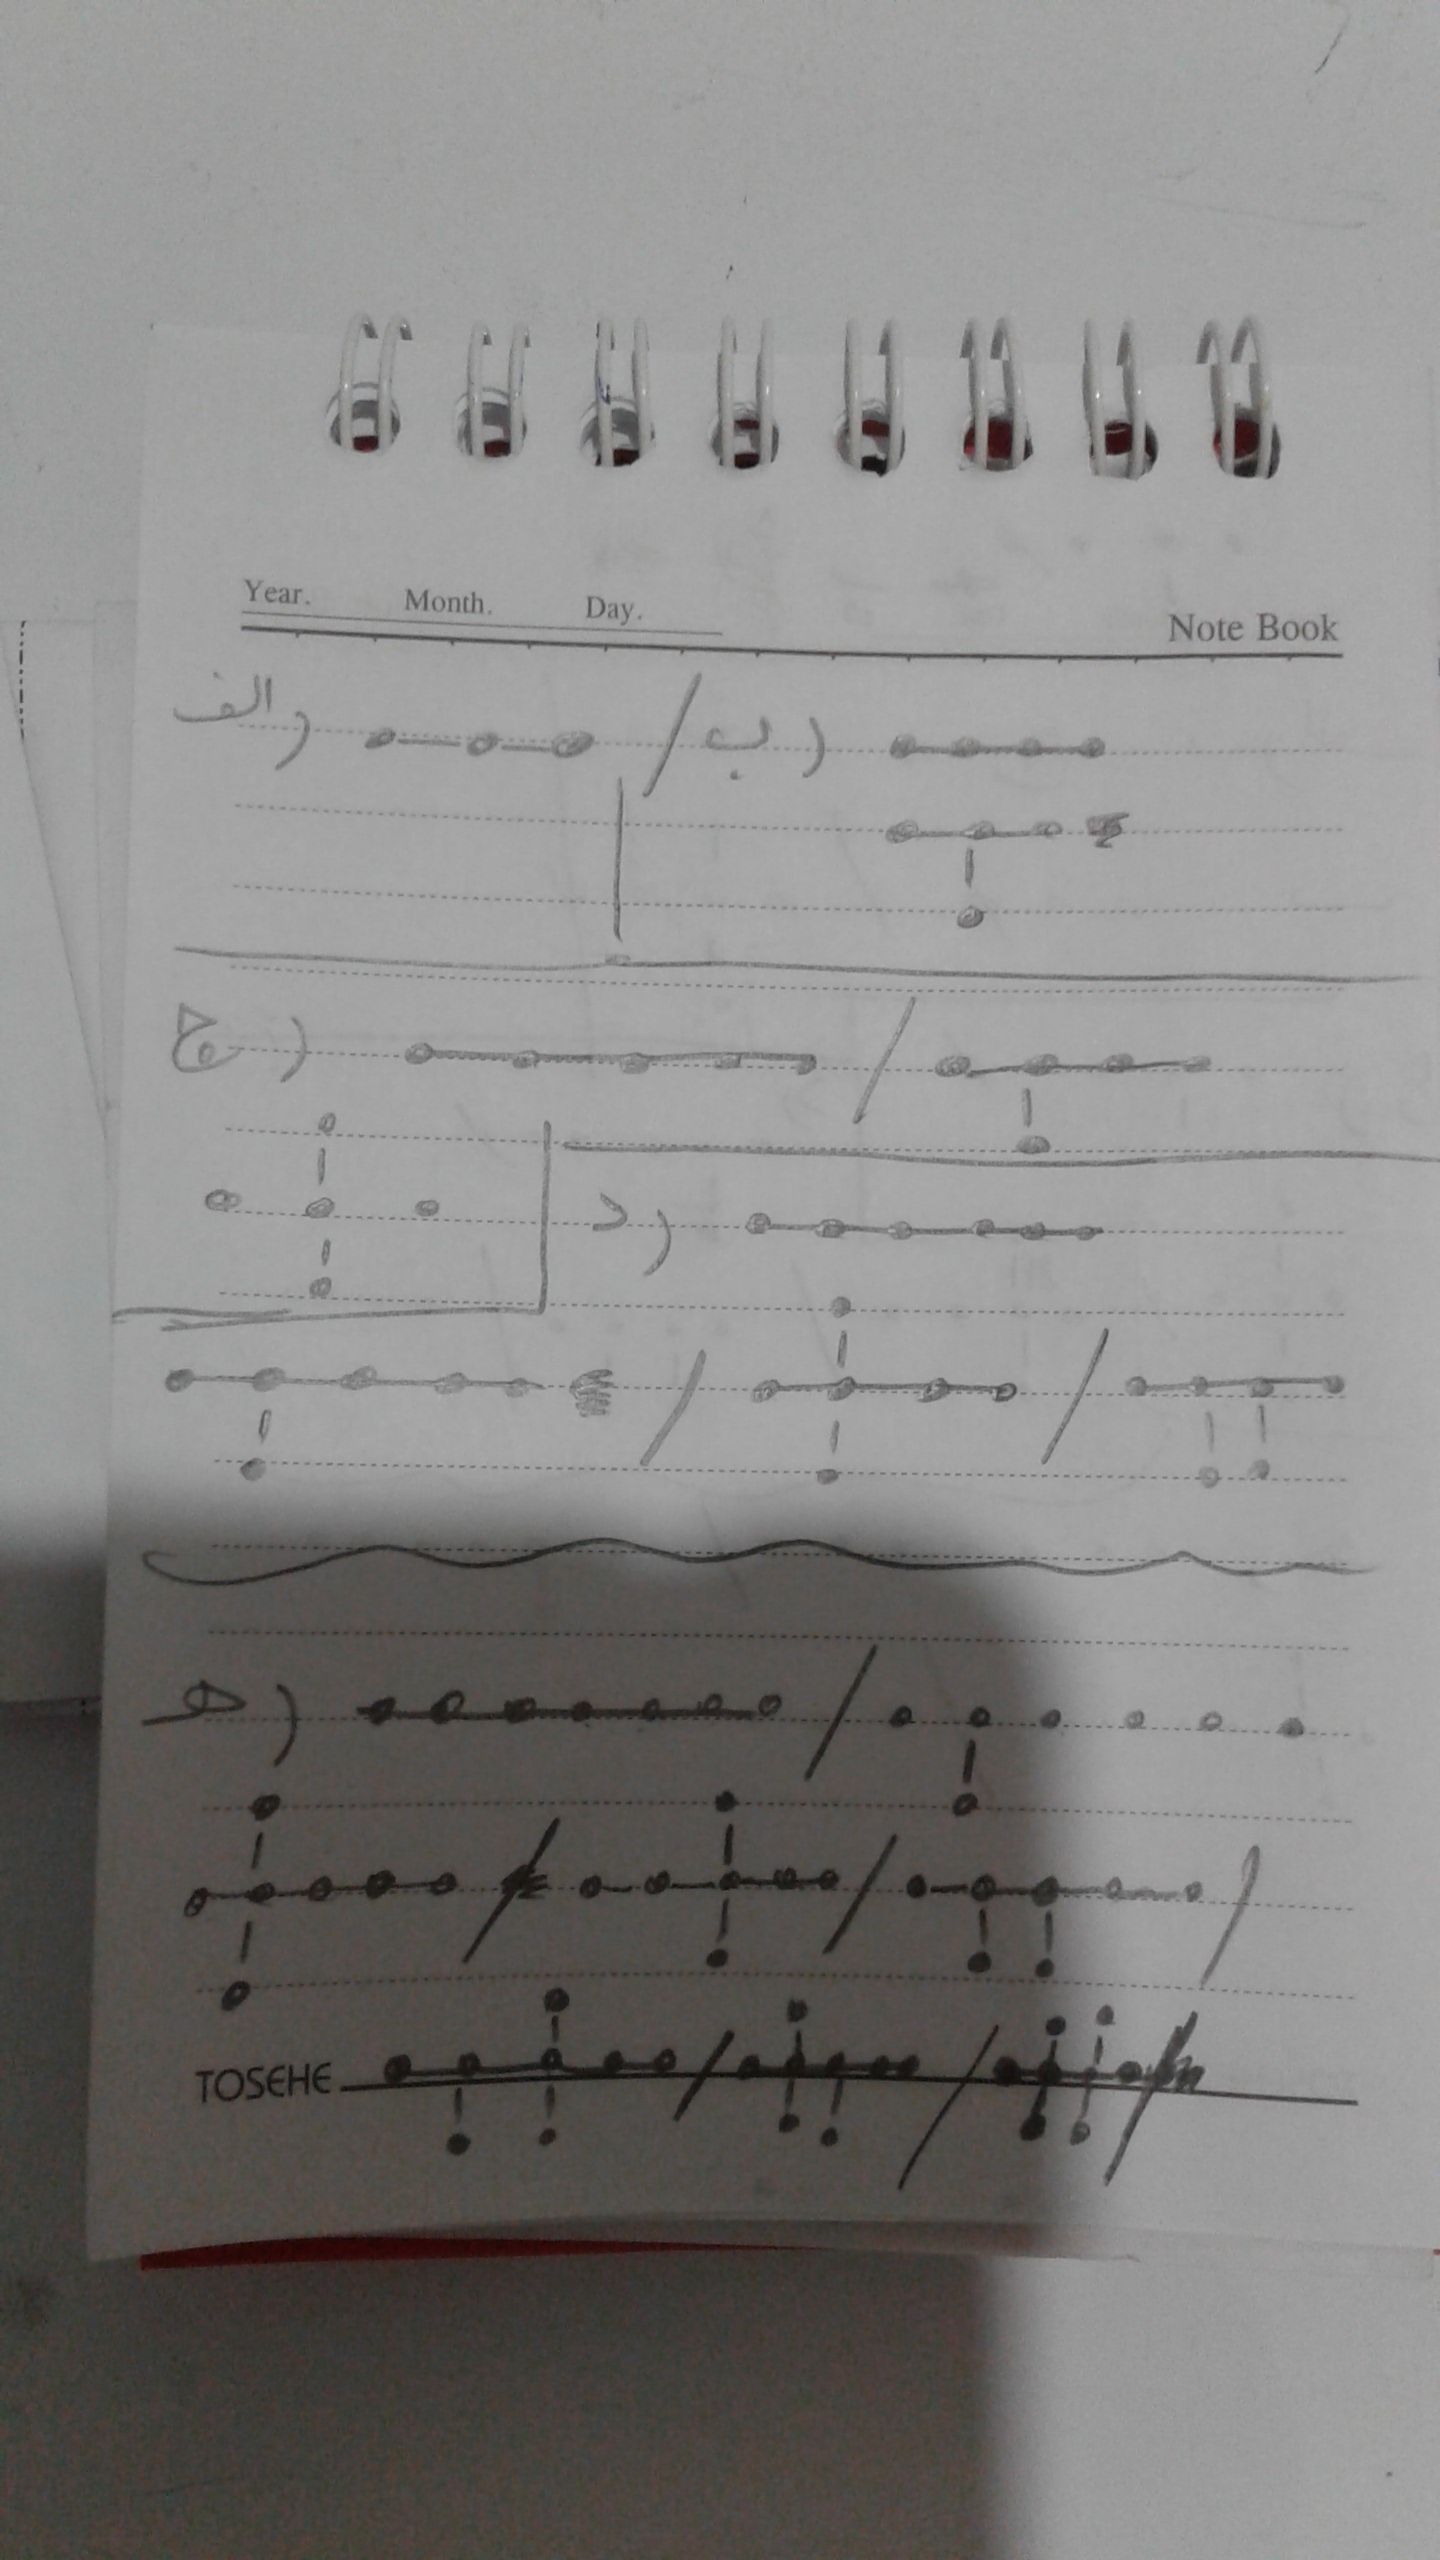 Year. Month. Day.
Note Book
الف) / ب)
ج) /
د)
/ /
ه) /
/ / /
TOSEHE / / /